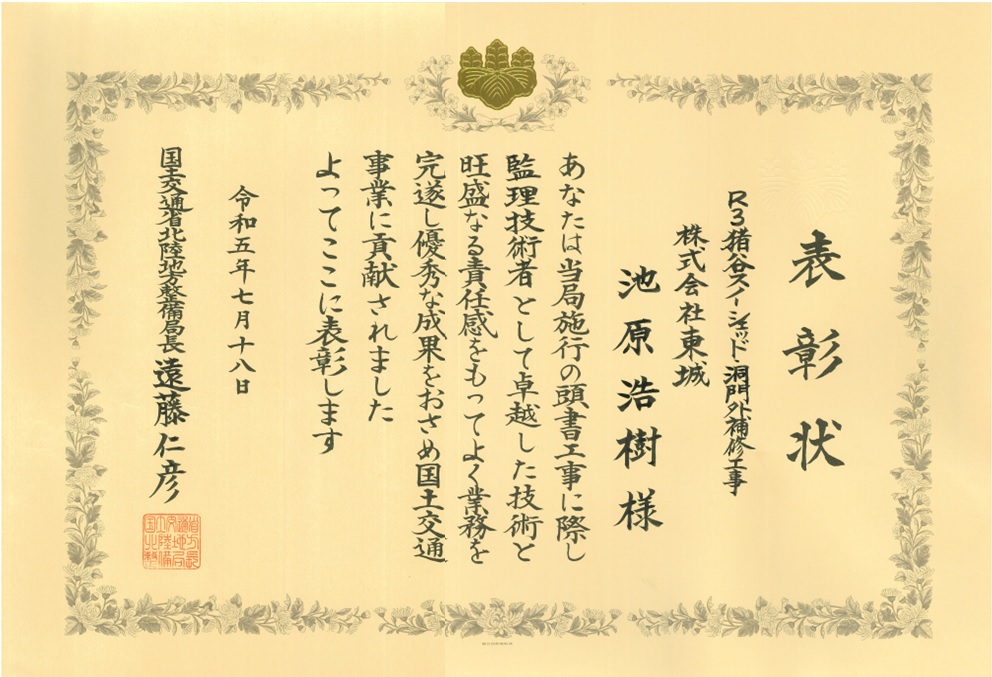 表彰状
R3猪谷スノーシェッド・洞門外補修工事
株式会社東城
池原浩樹様
あなたは当局施行の頭書工事に際し
監理技術者として卓越した技術と
旺盛なる責任感をもってよく業務を
完遂し優秀な成果をおさめ国土交通
事業に貢献されました
よってここに表彰します
令和五年七月十八日
国土交通省北陸地方整備局長 遠藤仁彦